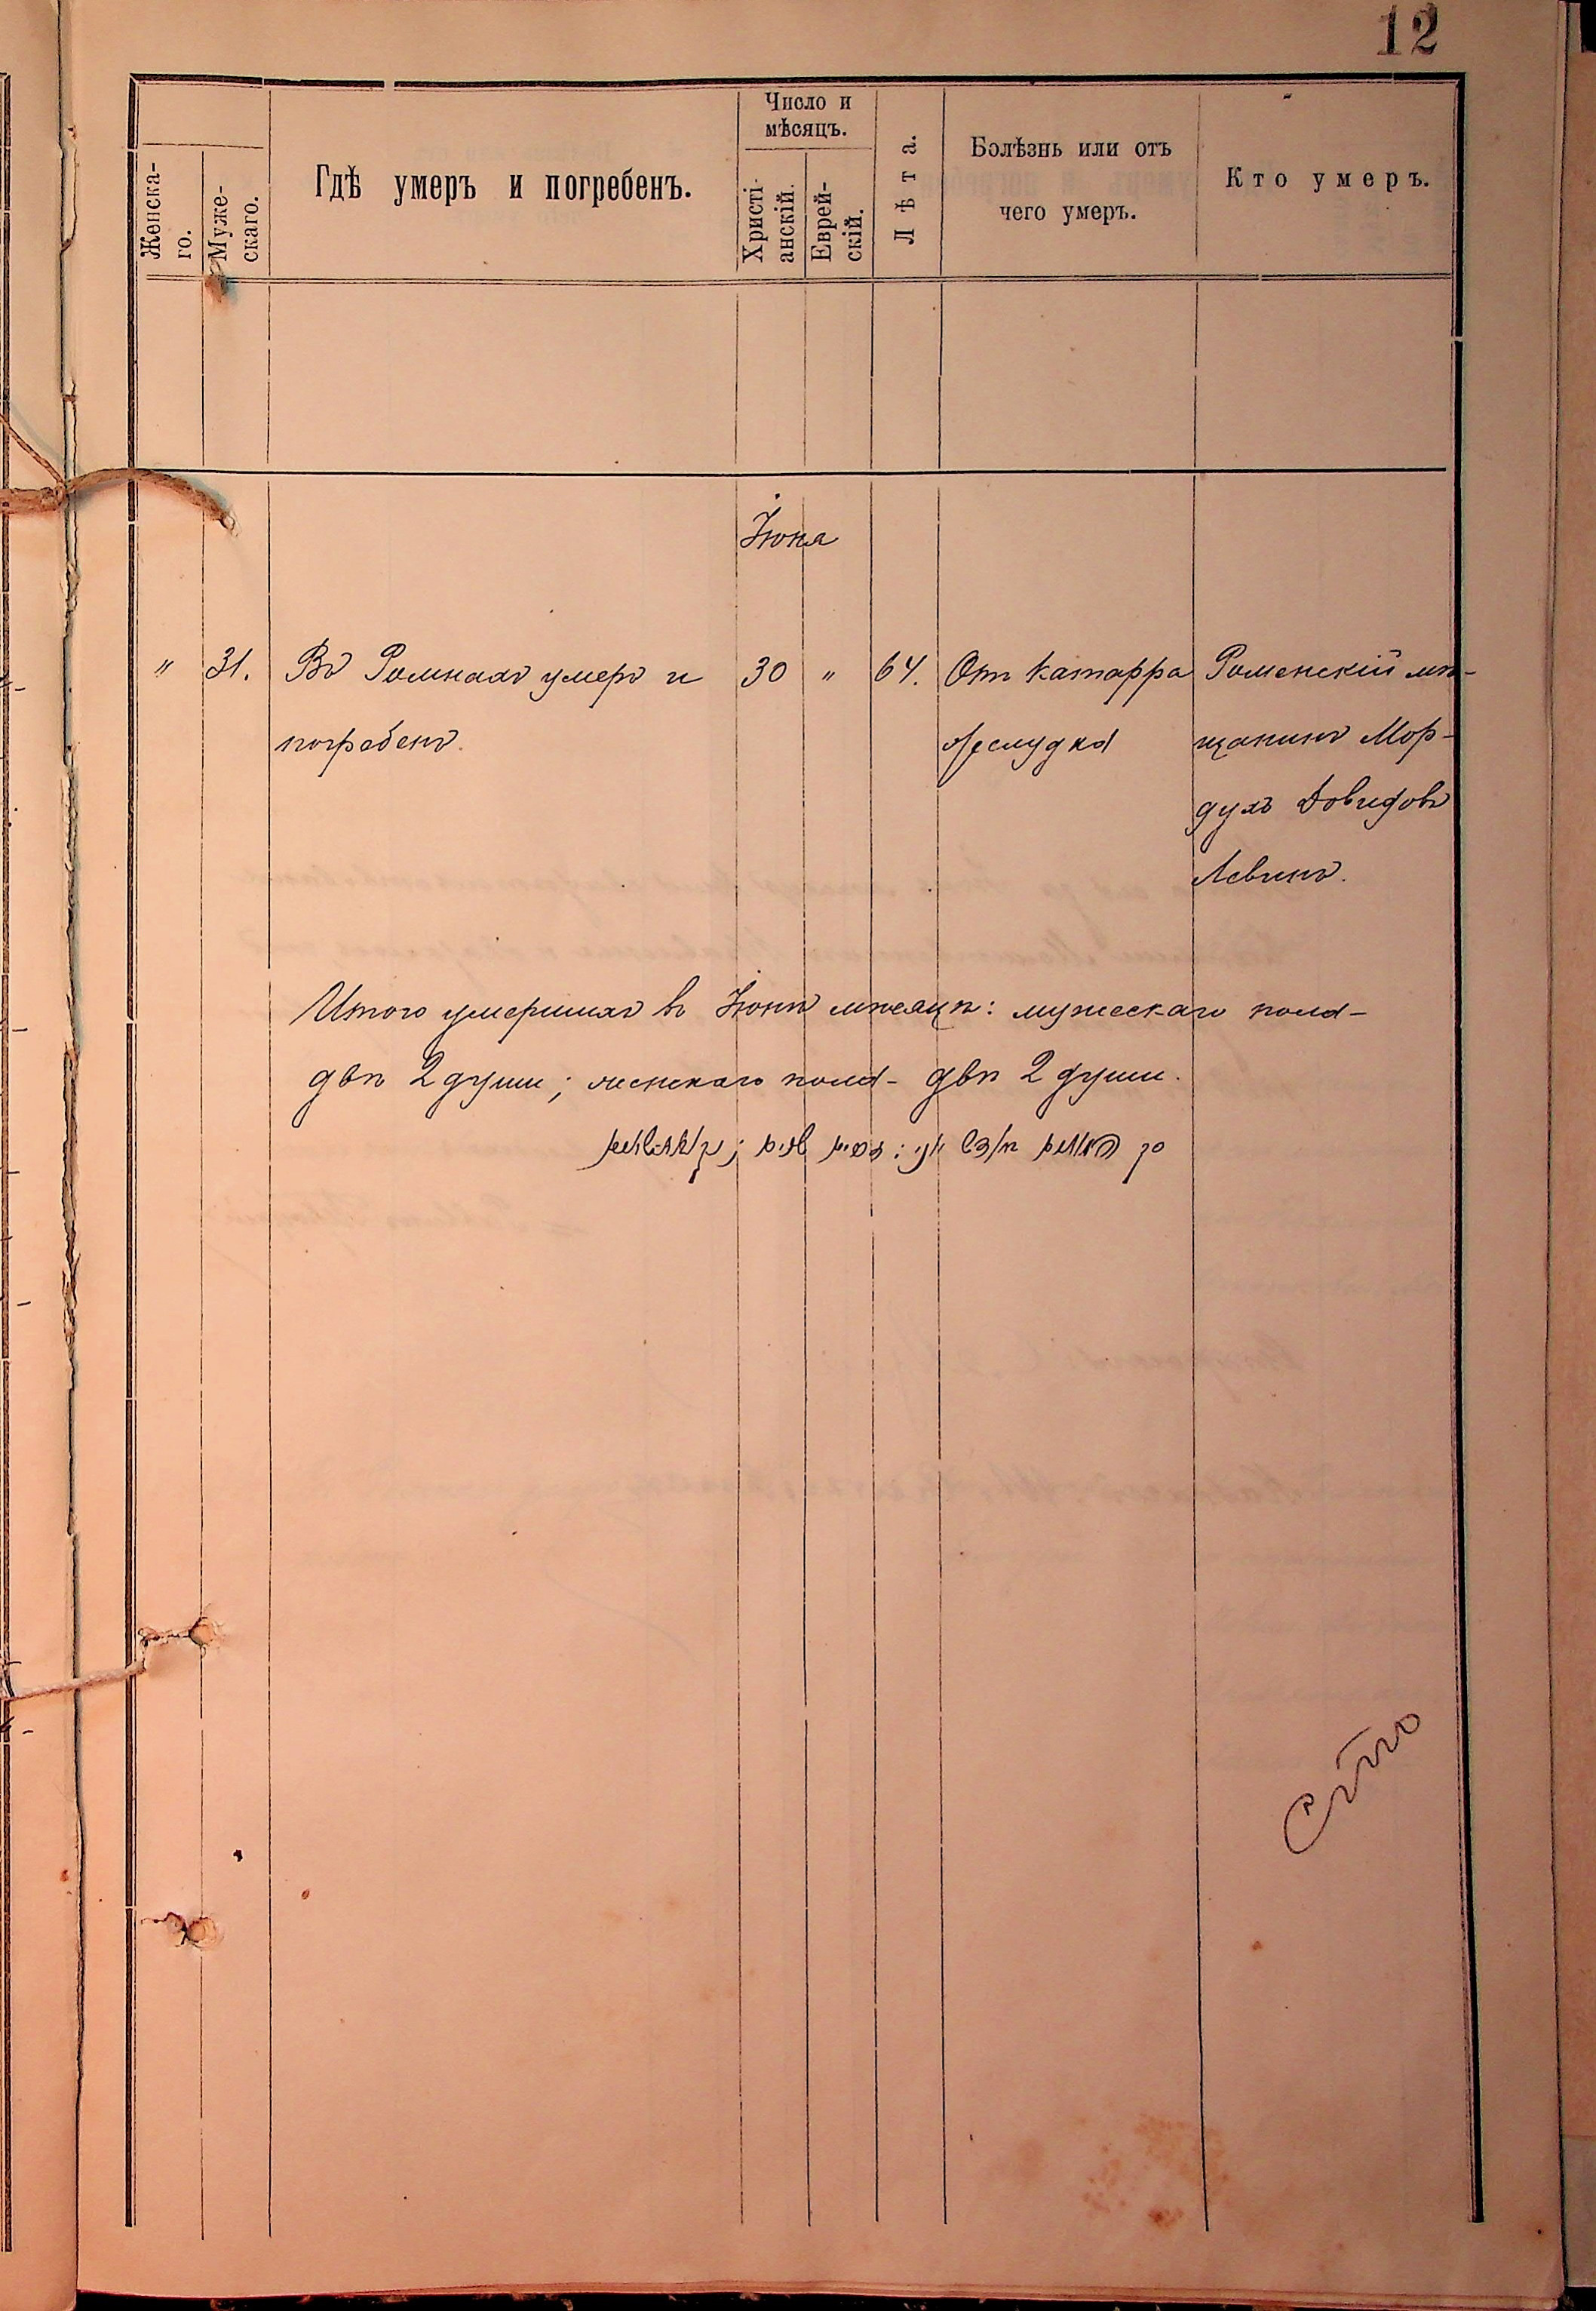 12
Женска-
го.
Муже-
скаго.
Гдѣ умеръ и погребенъ.
Число и
мѣсяцъ.
Христі-
анскій.
Еврей-
скій.
Лѣта.
Болѣзнь или отъ
чего умеръ.
Кто умеръ.
Іюня
" 31. Въ Ромнахъ умеръ и 30 " 64. Отъ катарра Роменскій мѣ-
погребенъ. желудка щанинъ Мор-
духъ Довидовъ
Левинъ.
Итого умершихъ въ Іюнѣ мѣсяцѣ: мужескаго пола-
двѣ 2 души; женскаго пола- двѣ 2 души.